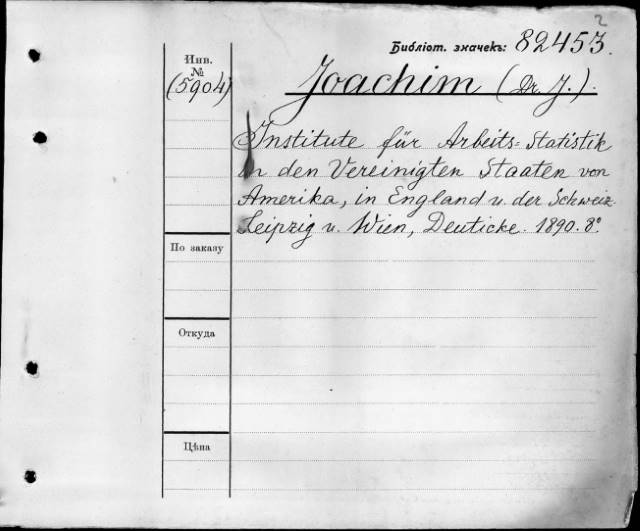 2
Библіот. значекъ: 82453.
Инв.
№
(5904)
Joachim (Dr J.).
Institute für Arbeits=Statistik
in den Vereinigten Staaten von
Amerika, in England u. der Schweiz.
Leipzig u. Wien, Deuticke. 1890. 8°
По заказу
Откуда
Цѣна